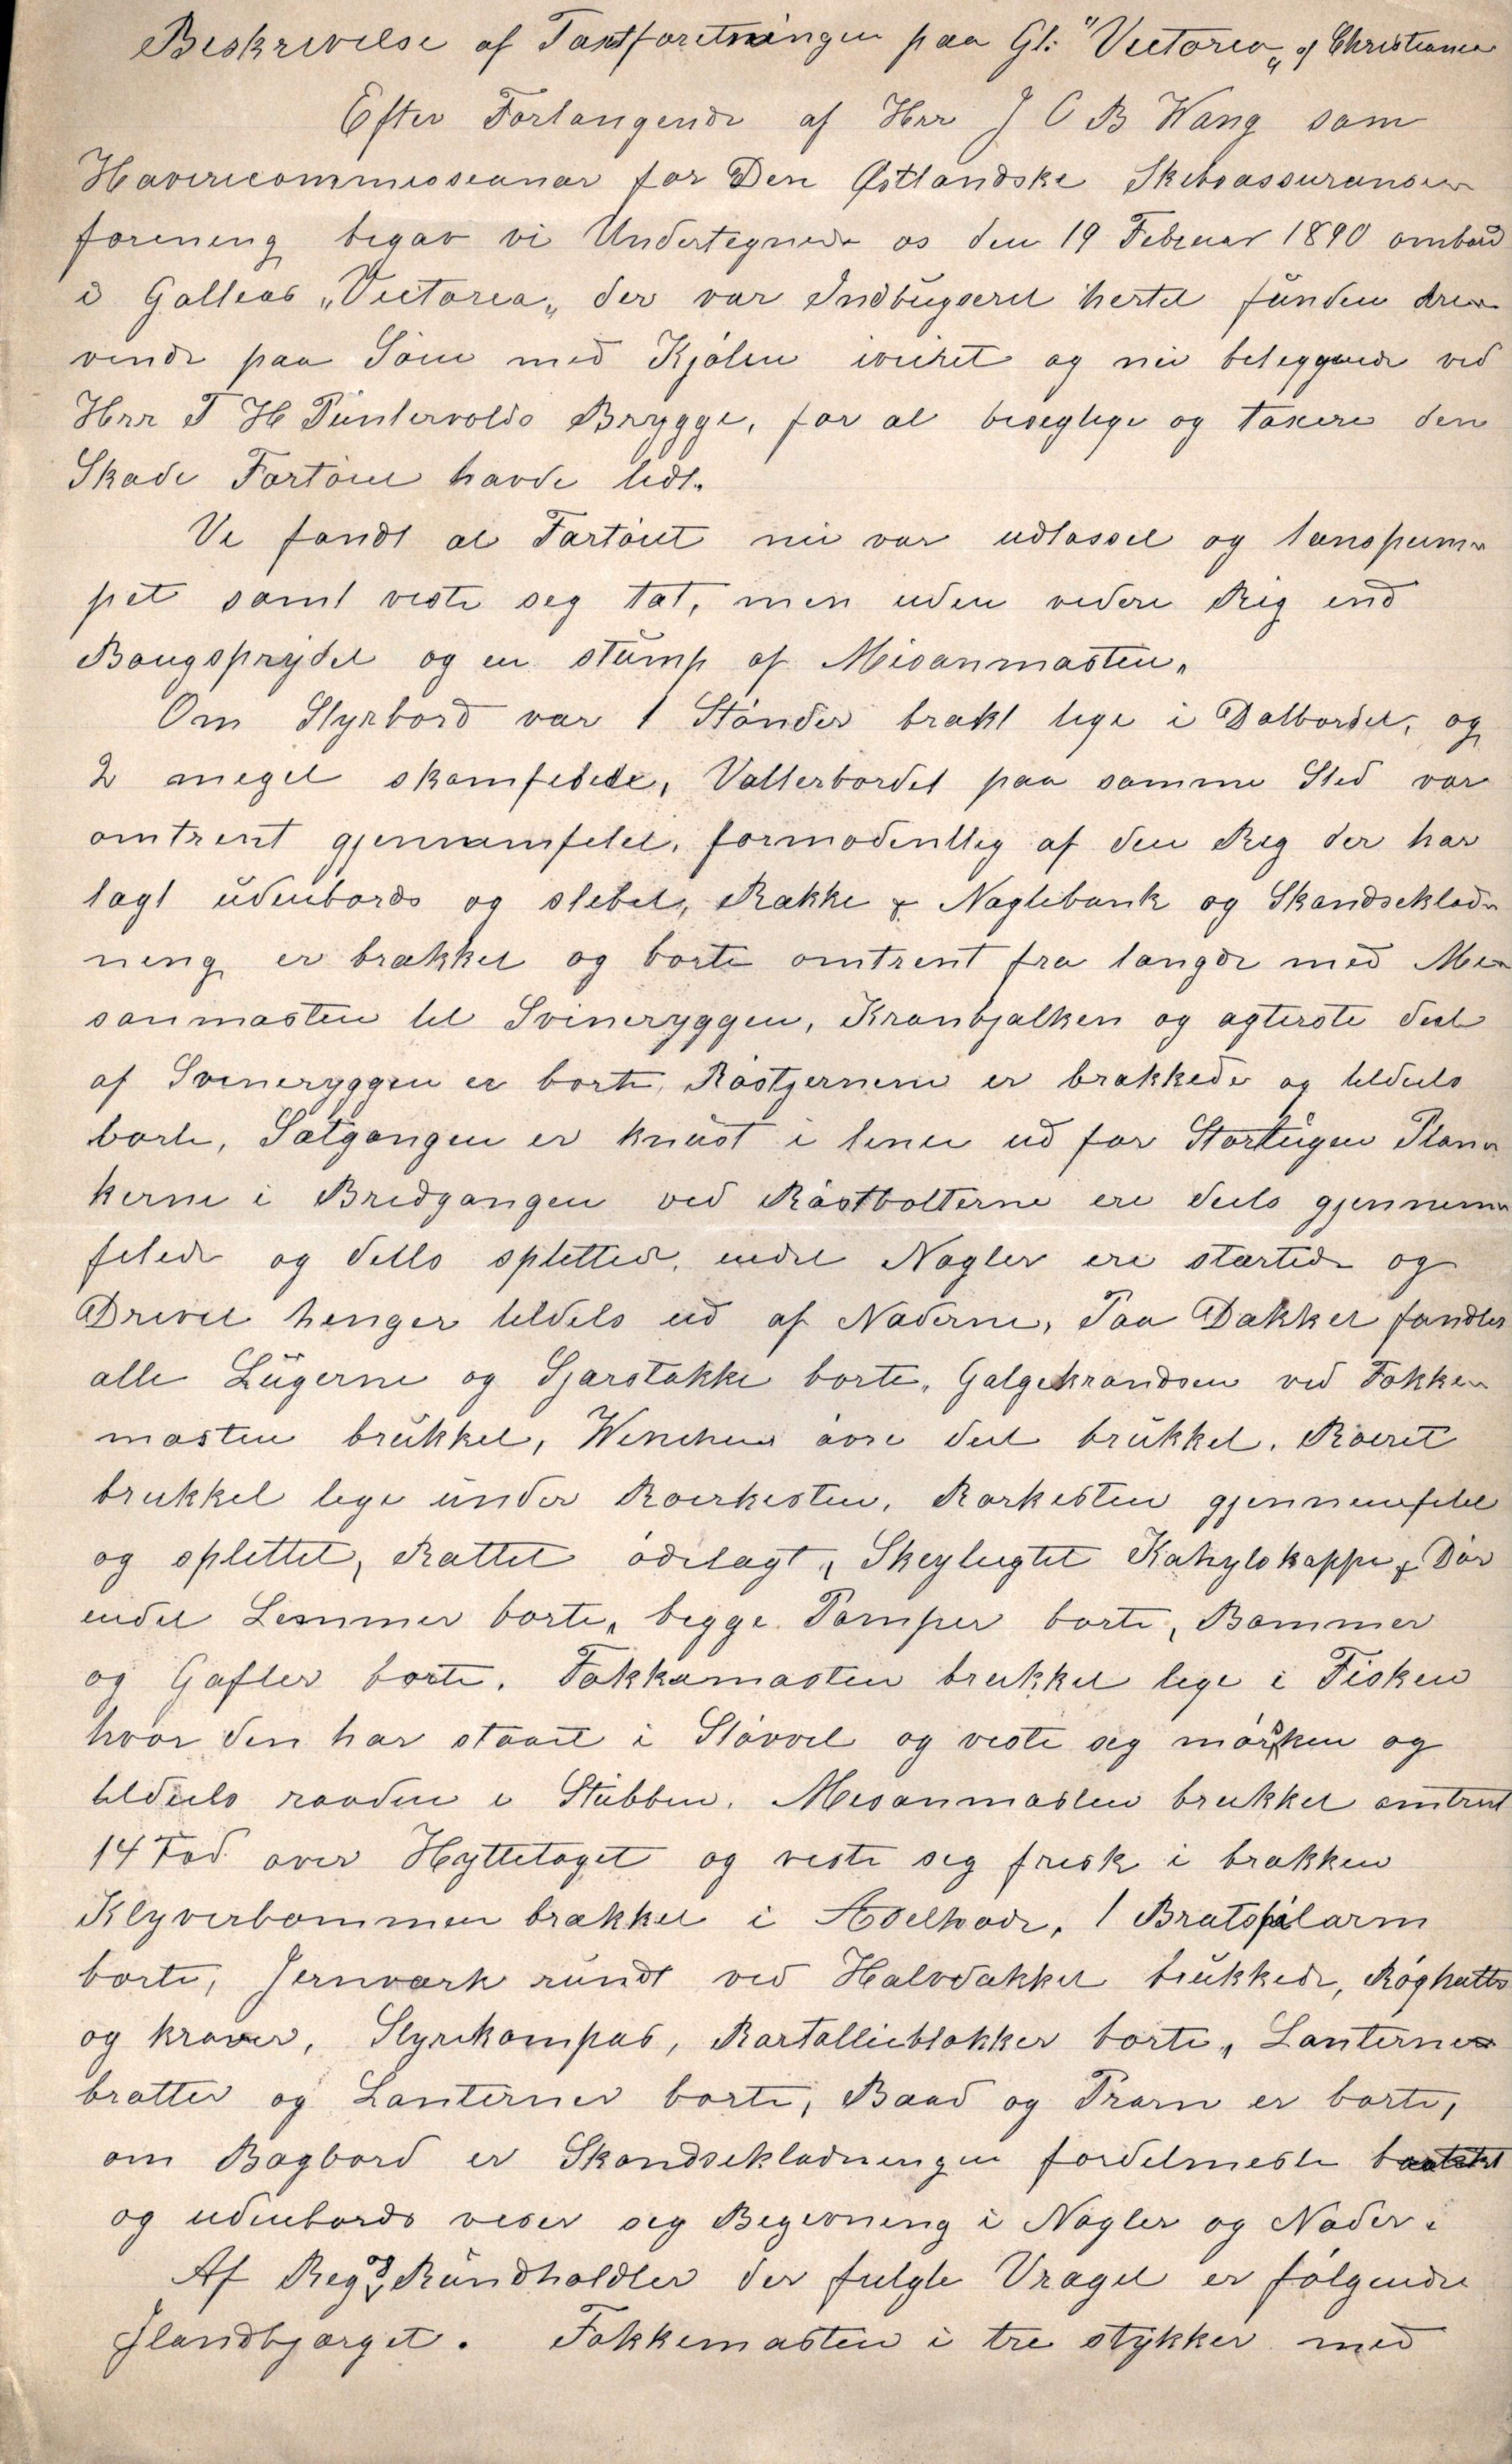 Beskrivelse af Taxtforetningen paa Gl: "Victoria„ af Christiania
Efter Forlangende af Herr J C B Wang som
Havericommissionær for Den Østlandske Skibsassurance
forening begav vi Undertegnede os den 19 Februar 1890 ombord
i Galleas „Victoria„ der var Indbugseret hertil funden dri-
vende paa Søen med Kjølen iveiret og nu beliggende ved
Herr T H Püntervolds Brygge, for at besigtige og taxere den
Skade Fartøiet havde lidt.
Vi fandt at Fartøiet nu var udlosset og lænspum-
pet samt viste sig tæt, men uden videre Rig end
Baugsprydet og en stump af Mesanmasten.
Om Styrbord var 1 Stønder brækt lige i Dolbordet, og
2 meget skamfilede, Vatterbordet paa samme Sted var
omtrent gjennemfilet, formodentlig af den Rig der har
lagt udenbords og slæbet, Række & Naglebænk og Skandseklæd-
ning er brækket og borte omtrent fra langde med Me-
sanmasten til Svineryggen, Kranbjælken og agterste deel
af Svineryggen er borte, Røstjernene er brækkede og tildeels
borte, Sætgangen er knust i linie ud for Storlugen Plan-
kerne i Bredgangen ved Røstbolterne ere deels gjennem-
filede og dells splittede, endel Nagler ere startede og
Drivet henger tildels ud af Naderne, Paa Dækket fandtes
alle Lügerne og Sjærstokke borte, Galgekrandsen ved Fokke-
masten brükket, Winchens øvre deel brükket. Roeret
brukket lige under Roerkisten, Rorkisten gjennemfilet
og splittet, Rattet ødelagt, Skeylugtet Kahytskappe & Dør
endel Lemmer borte, begge Pomper borte, Bommer
og Gafler borte. Fokkemasten brukket lige i Fisken
hvor den har staaet i Støvvel og viste sig mørken og
tildeels raaden i Stubben. Mesanmasten brukket omtrent
14 Fod over Hyttetaget og viste sig frisk i brækken
Klyverbommen brækket i Æselhode, 1 Bratspilarm
borte, Jernværk rundt ved Halvdækket brukkede, Røghatte
og kraver, Styrekompas, Rortallieblokker borte, Lanterne-
bratter og Lanterner borte, Baad og Pram er borte,
om Bagbord er Skandseklædningen fordelmeste
og udenbords viser sig Begivning i Nagler og Nader.
Af Rig og Rundholdter der fulgte Vraget er følgende
Ilandbjærget. Fokkemasten i tre stykker med